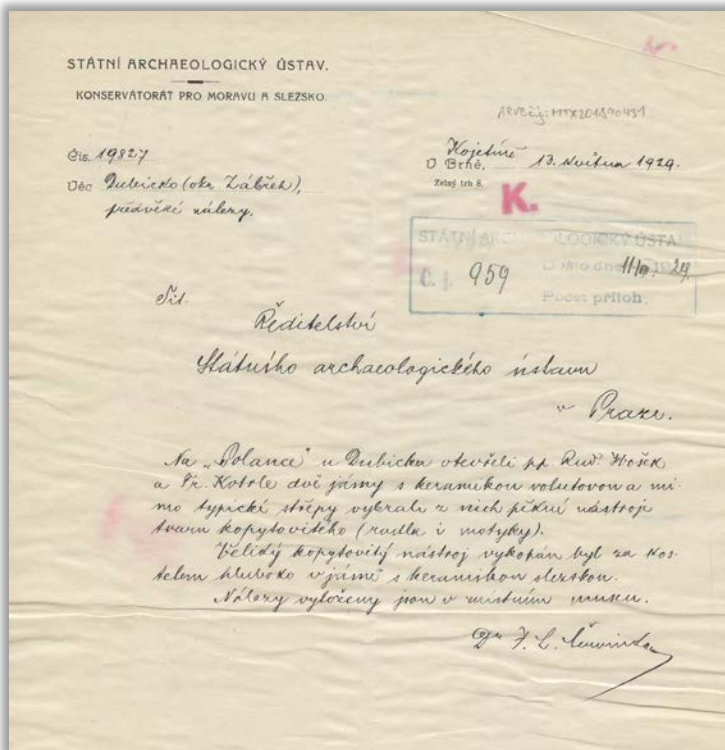 STÁTNÍ ARCHAEOLOGICKÝ ÚSTAV.
KONSERVÁTORÁT PRO MORAVU A SLEZSKO.
Čís. 19827
Věc Dubicko (okr. Zábřeh),
předvěké nálezy.
Kojetíně
V Brně, 13. května 1929.
Zelný trh 8.
K.
STÁTNÍ ARCHAEOLOGICKÝ ÚSTAV
Č. j. 959
Došlo dne
Počet příloh
Tit.
Ředitelství
Státního archaeologického ústavu
v Praze.
Na „Polance" u Dubicka otevřeli pp. Rud. Hošek
a Fr. Kotrle dvě jámy s keramikou volutovou a mi-
mo typické střepy vybrali z nich pěkné nástroje
tvaru kopytovitého (radla i motyky).
Veliký kopytovitý nástroj vykopán byl za kos-
telem hluboko v jámě s keramikou slezskou.
Nálezy vyloženy jsou v místním museu.
Dr